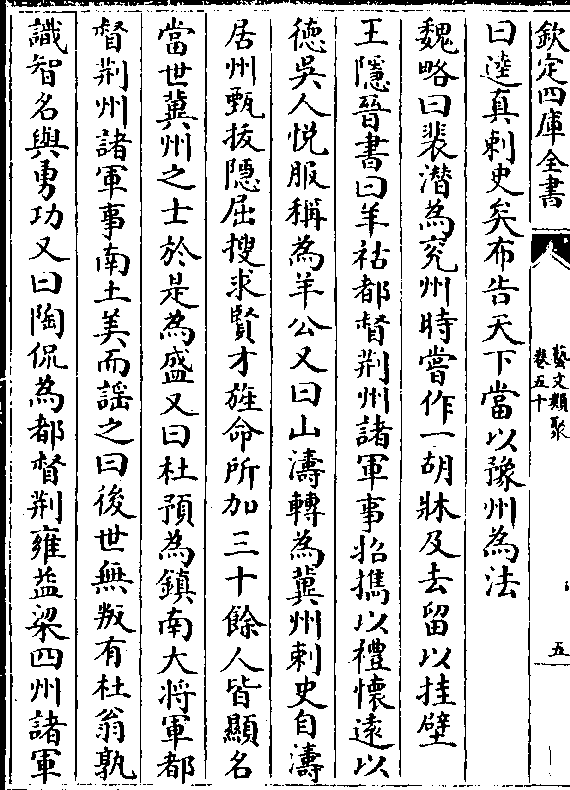 欽定四庫全書
藝文類聚
卷五十
五
曰逵真刺史矣布告天下當以豫州為法
魏略曰裴潛為兖州時嘗作一胡牀及去留以挂壁
王隱晉書曰羊祜都督荆州諸軍事招攜以禮懷遠以
徳吳人悦服稱為羊公又曰山濤轉為冀州刺史自濤
居州甄拔隠屈搜求賢才旌命所加三十餘人皆顯名
當世冀州之士於是為盛又曰杜預為鎮南大将軍都
督荆州諸軍事南土美而謡之曰後世無叛有杜翁孰
識智名與勇功又曰陶侃為都督荆雍益梁四州諸軍